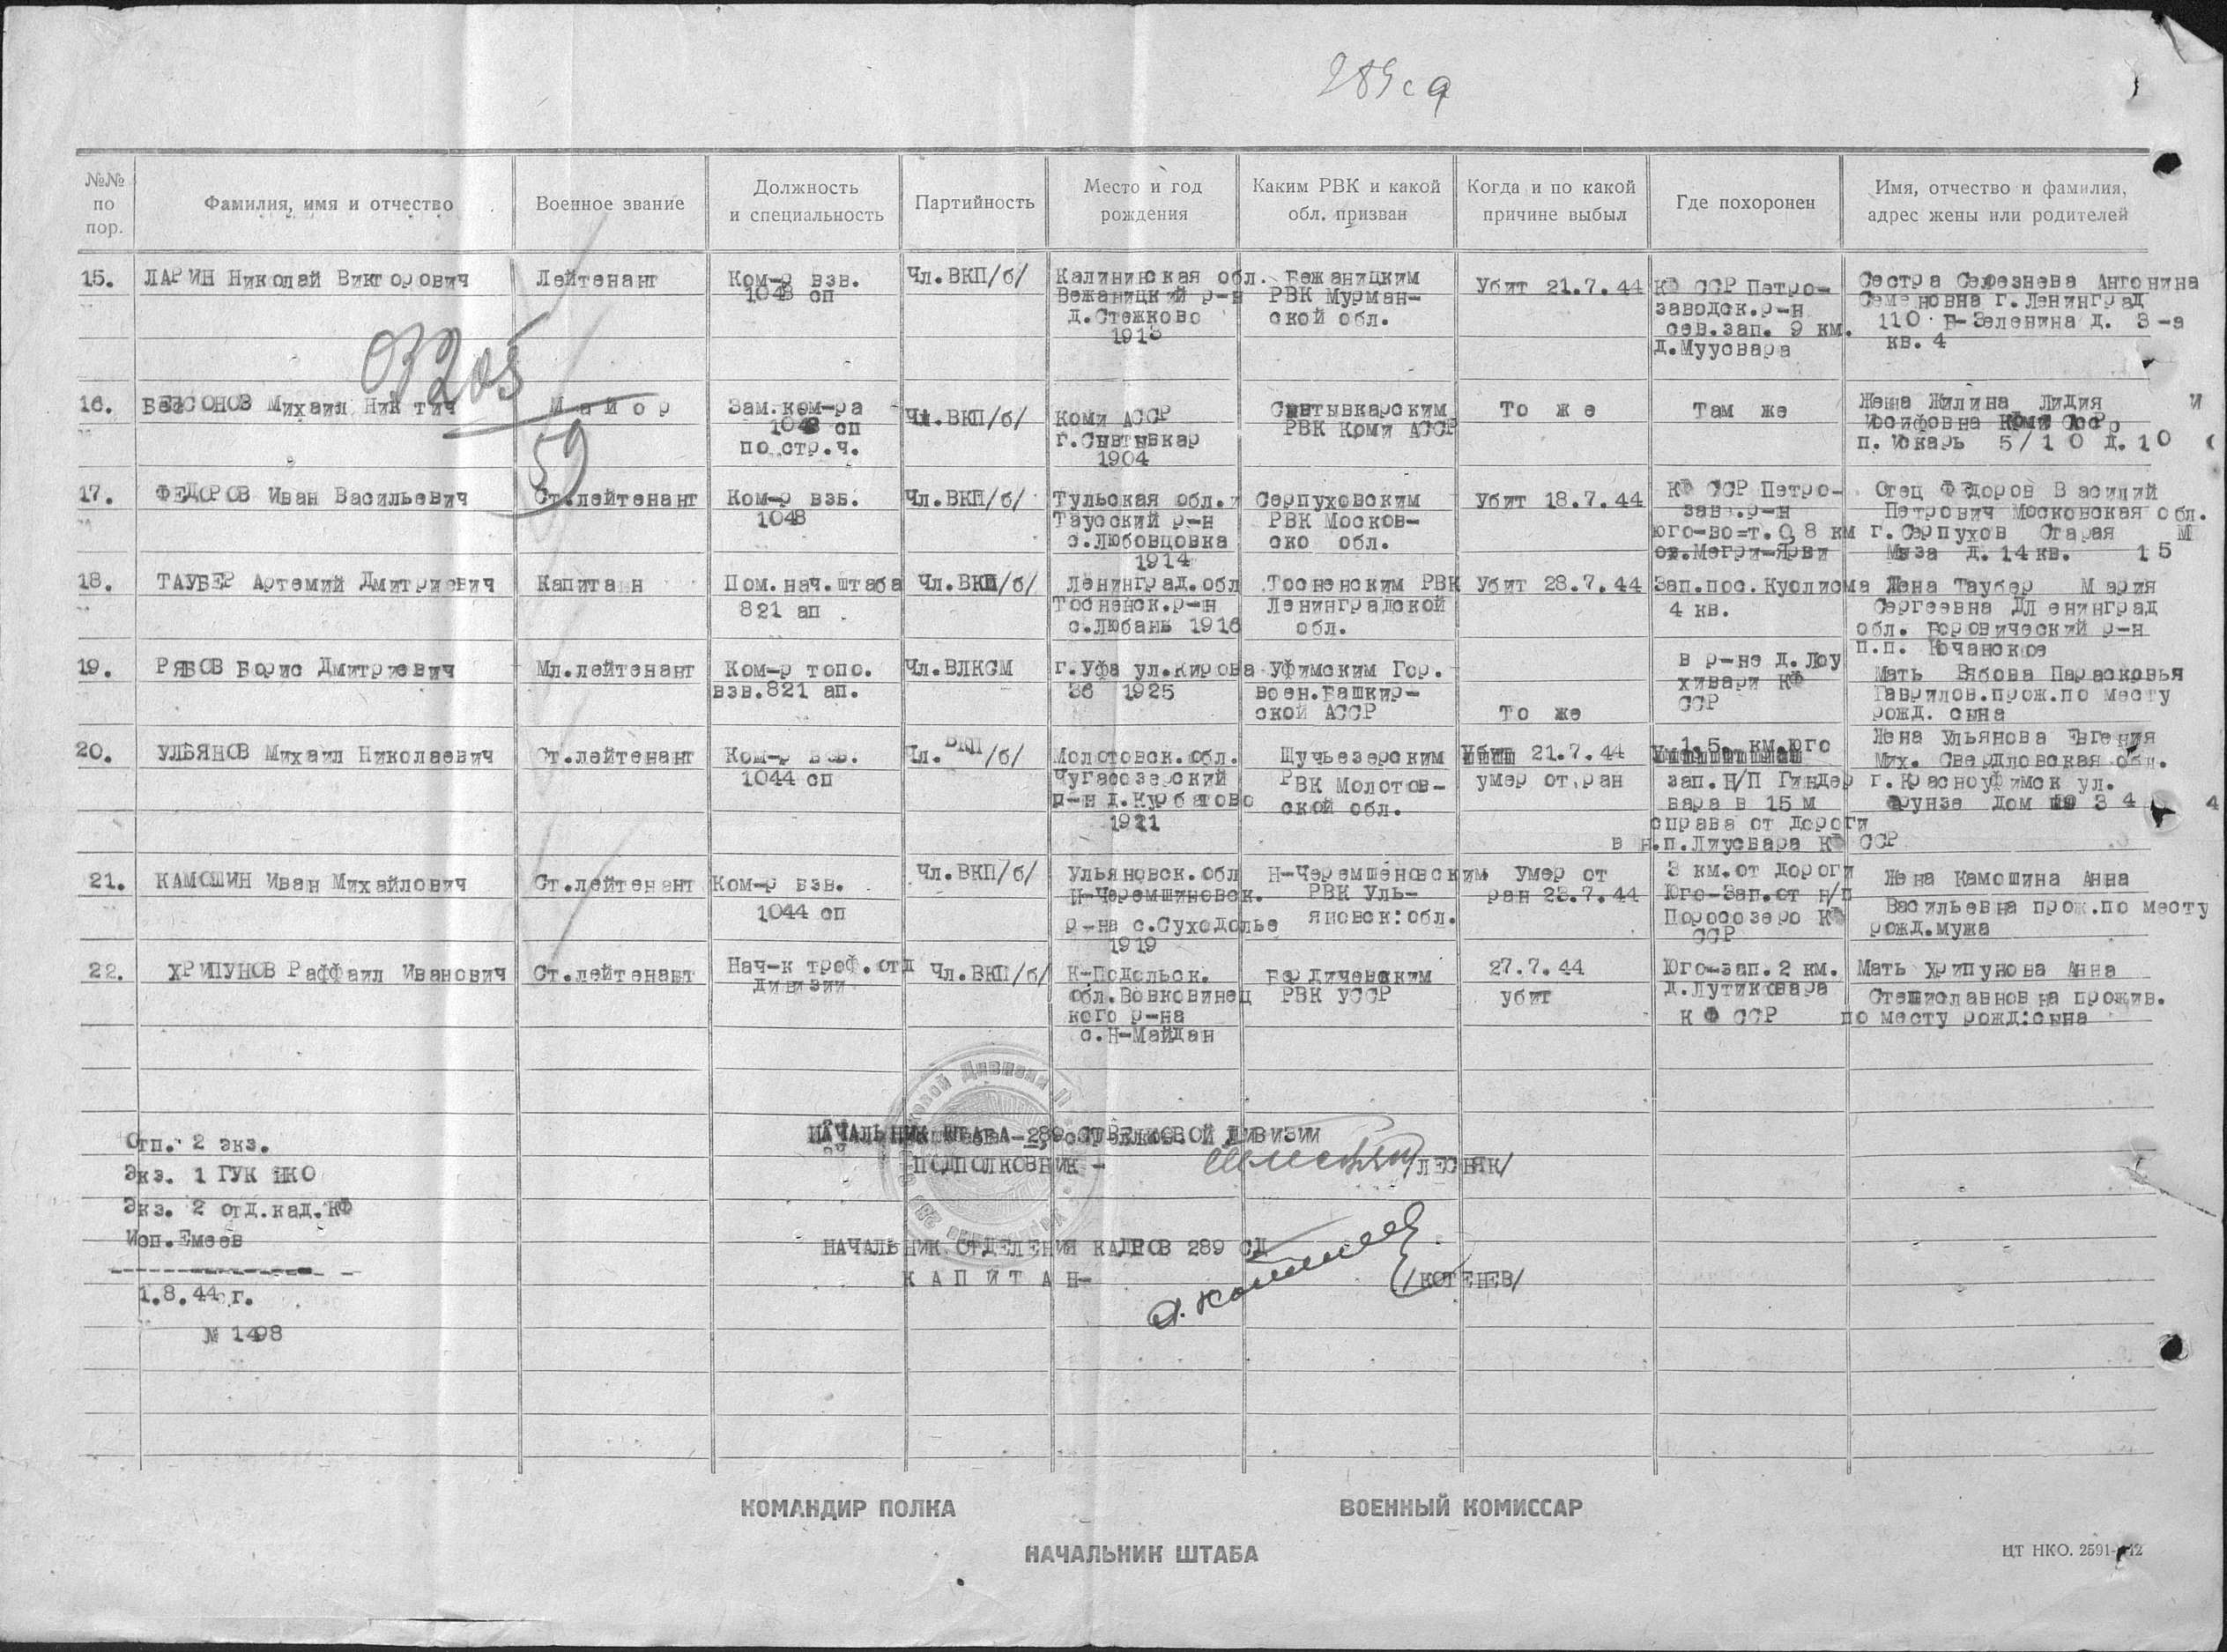 289 сд
№№ по пор.
Фамилия, имя и отчество
Военное звание
Должность и специальность
Партийность
Место и год рождения
Каким РВК и какой обл. призван
Когда и по какой причине выбыл
Где похоронен
Имя, отчество и фамилия, адрес жены или родителей
15. ЛАРИН Николай Викторович
Лейтенант
Ком-р взв.
1048 сп
Чл.ВКП/б/
Калининская обл.
Бежаницкий р-н
д.Стежково
1913
Бежаницким
РВК Мурман-
ской обл.
Убит 21.7.44
КФ ССР Петро-
заводск.р-н
сев.зап. 9 км.
д.Муусвара
Сестра Селезнева Антонина
Семеновна г.Ленинград
110 Б-Зеленина д. 3-а
кв. 4
03205
59
16. БЕССОНОВ Михаил Никтич
Майор
Зам.ком-ра
1048 сп
по стр.ч.
Чл.ВКП/б/
Коми АССР
г.Сывтывкар
1904
РВК Коми АССР
То же
Там же
Жена Жилина Лидия И
Иосифовна Коми
п. Искарь 5/10 д.10
17. ФЕДОРОВ Иван Васильевич
Ст.лейтенант
Ком-р взв.
1048
Чл.ВКП/б/
Тульская обл.
Таусский р-н
с.Любовцовка
1914
Серпуховским
РВК Москов-
ско обл.
Убит 18.7.44
КФ ССР Петро-
зав.р-н
юго-во=т.0,8 км
оз.Мегри-Ярви
Отец Федоров Василий
Петрович Московская обл.
г.Серпухов Старая М
Мыза д.14 кв. 15
18. ТАУБЕР Артемий Дмитриевич
Капитан
Пом.нач.штаба
821 ап
Чл.ВКП/б/
Ленинград.обл
Тосненск.р-н
с.Любань 1916
Тосненским РВК
Ленинградской
обл.
Убит 28.7.44
Зап.пос.Куолисма
4 кв.
Жена Таубер Мария
Сергеевна Ленинград
обл. Боровический р-н
п.п. Кочанское
19. РЯБОВ Борис Дмитриевич
Мл.лейтенант
Ком-р топо.
взв.821 ап.
Чл.ВЛКСМ
г.Уфа ул.Кирова
36 1925
Уфимским Гор.
воен.Башкир-
ской АССР
То же
в р-не д.Лоу
хивари КФ
ССР
Мать Рябова Парасковья
Гаврилов.прож.по месту
рожд. сына
20. УЛЬЯНОВ Михаил Николаевич
Ст.лейтенант
Ком-р взв.
1044 сп
Чл.ВКП/б/
Молотовск.обл.
Чугасозерский
р-н д.Курбатово
1921
Щучьезерским
РВК Молотов-
ской обл.
21.7.44
умер от ран
1,5 км.юго
зап.Н/П Гиндер
вара в 15 м
справа от дороги
в н.п.Лиусвара КФ ССР
Жена Ульянова Евгения
Мих. Свердловская обл.
г.Красноуфимск ул.
Фрунзе дом 34 4
21. КАМОШИН Иван Михайлович
Ст.лейтенант
Ком-р взв.
1044 сп
Чл.ВКП/б/
Ульяновск.обл
Н-Черемшиновск.
р-на с.Суходолье
1919
Н-Черемшеновским
РВК Уль-
яновск:обл.
Умер от
ран 23.7.44
3 км.от дороги
Юго-Зап.от н/п
Поросозеро КФ
ССР
Жена Камошина Анна
Васильевна прож.по месту
рожд.мужа
22. ХРИПУНОВ Раффаил Иванович
Ст.лейтенант
Нач-к троф.отд
дивизии
Чл.ВКП/б/
К-Подольск.
обл.Вовковинец
кого р-на
с.Н-Майдан
Бердичевским
РВК УССР
27.7.44
убит
Юго-зап.2 км.
д.Лутиковара
К Ф ССР
Мать Хрипунова Анна
прожив.
по месту рожд:сына
НАЧАЛЬНИК ШТАБА 289 СТРЕЛКОВОЙ ДИВИЗИИ
ПОДПОЛКОВНИК- /ЛЕСНЯК/
НАЧАЛЬНИК ОТДЕЛЕНИЯ КАДРОВ 289 СД
КАПИТАН- /КОТЕНЕВ/
Отп. 2 экз.
Экз. 1 ГУК НКО
Экз. 2 отд.кад.КФ
Исп.Емеев
1.8.44 г.
№ 1498
КОМАНДИР ПОЛКА
ВОЕННЫЙ КОМИССАР
НАЧАЛЬНИК ШТАБА